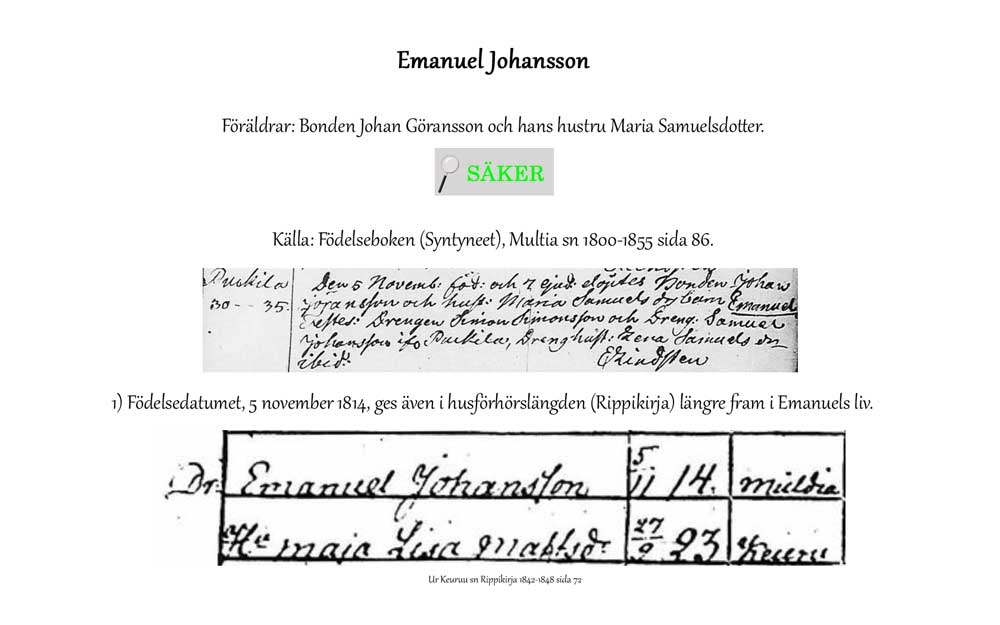 Emanuel Johansson
Föräldrar: Bonden Johan Göransson och hans hustru Maria Samuelsdotter.
SÄKER
Källa: Födelseboken (Syntyneet), Multia sn 1800-1855 sida 86.
Puskila Den 5 Novemb: föd: och 7 ejusd. döptes Bonden Johan
30 - - 35. Göransson och hust: Maria Samuels dr barn Emanuel
Testes: Drengen Simon Simonsson och Dreng: Samuel
Johansson ifr Puskila, Dreng hust: Lena Samuels dr
ibid:
1) Födelsedatumet, 5 november 1814, ges även i husförhörslängden (Rippikirja) längre fram i Emanuels liv.
Dr: Emanuel Johansson 5/11 14. Muldia
Hu Maja Lisa Mattsdr 27/9 23 Keuru
Ur Keuruu sn Rippikirja 1842-1848 sida 72